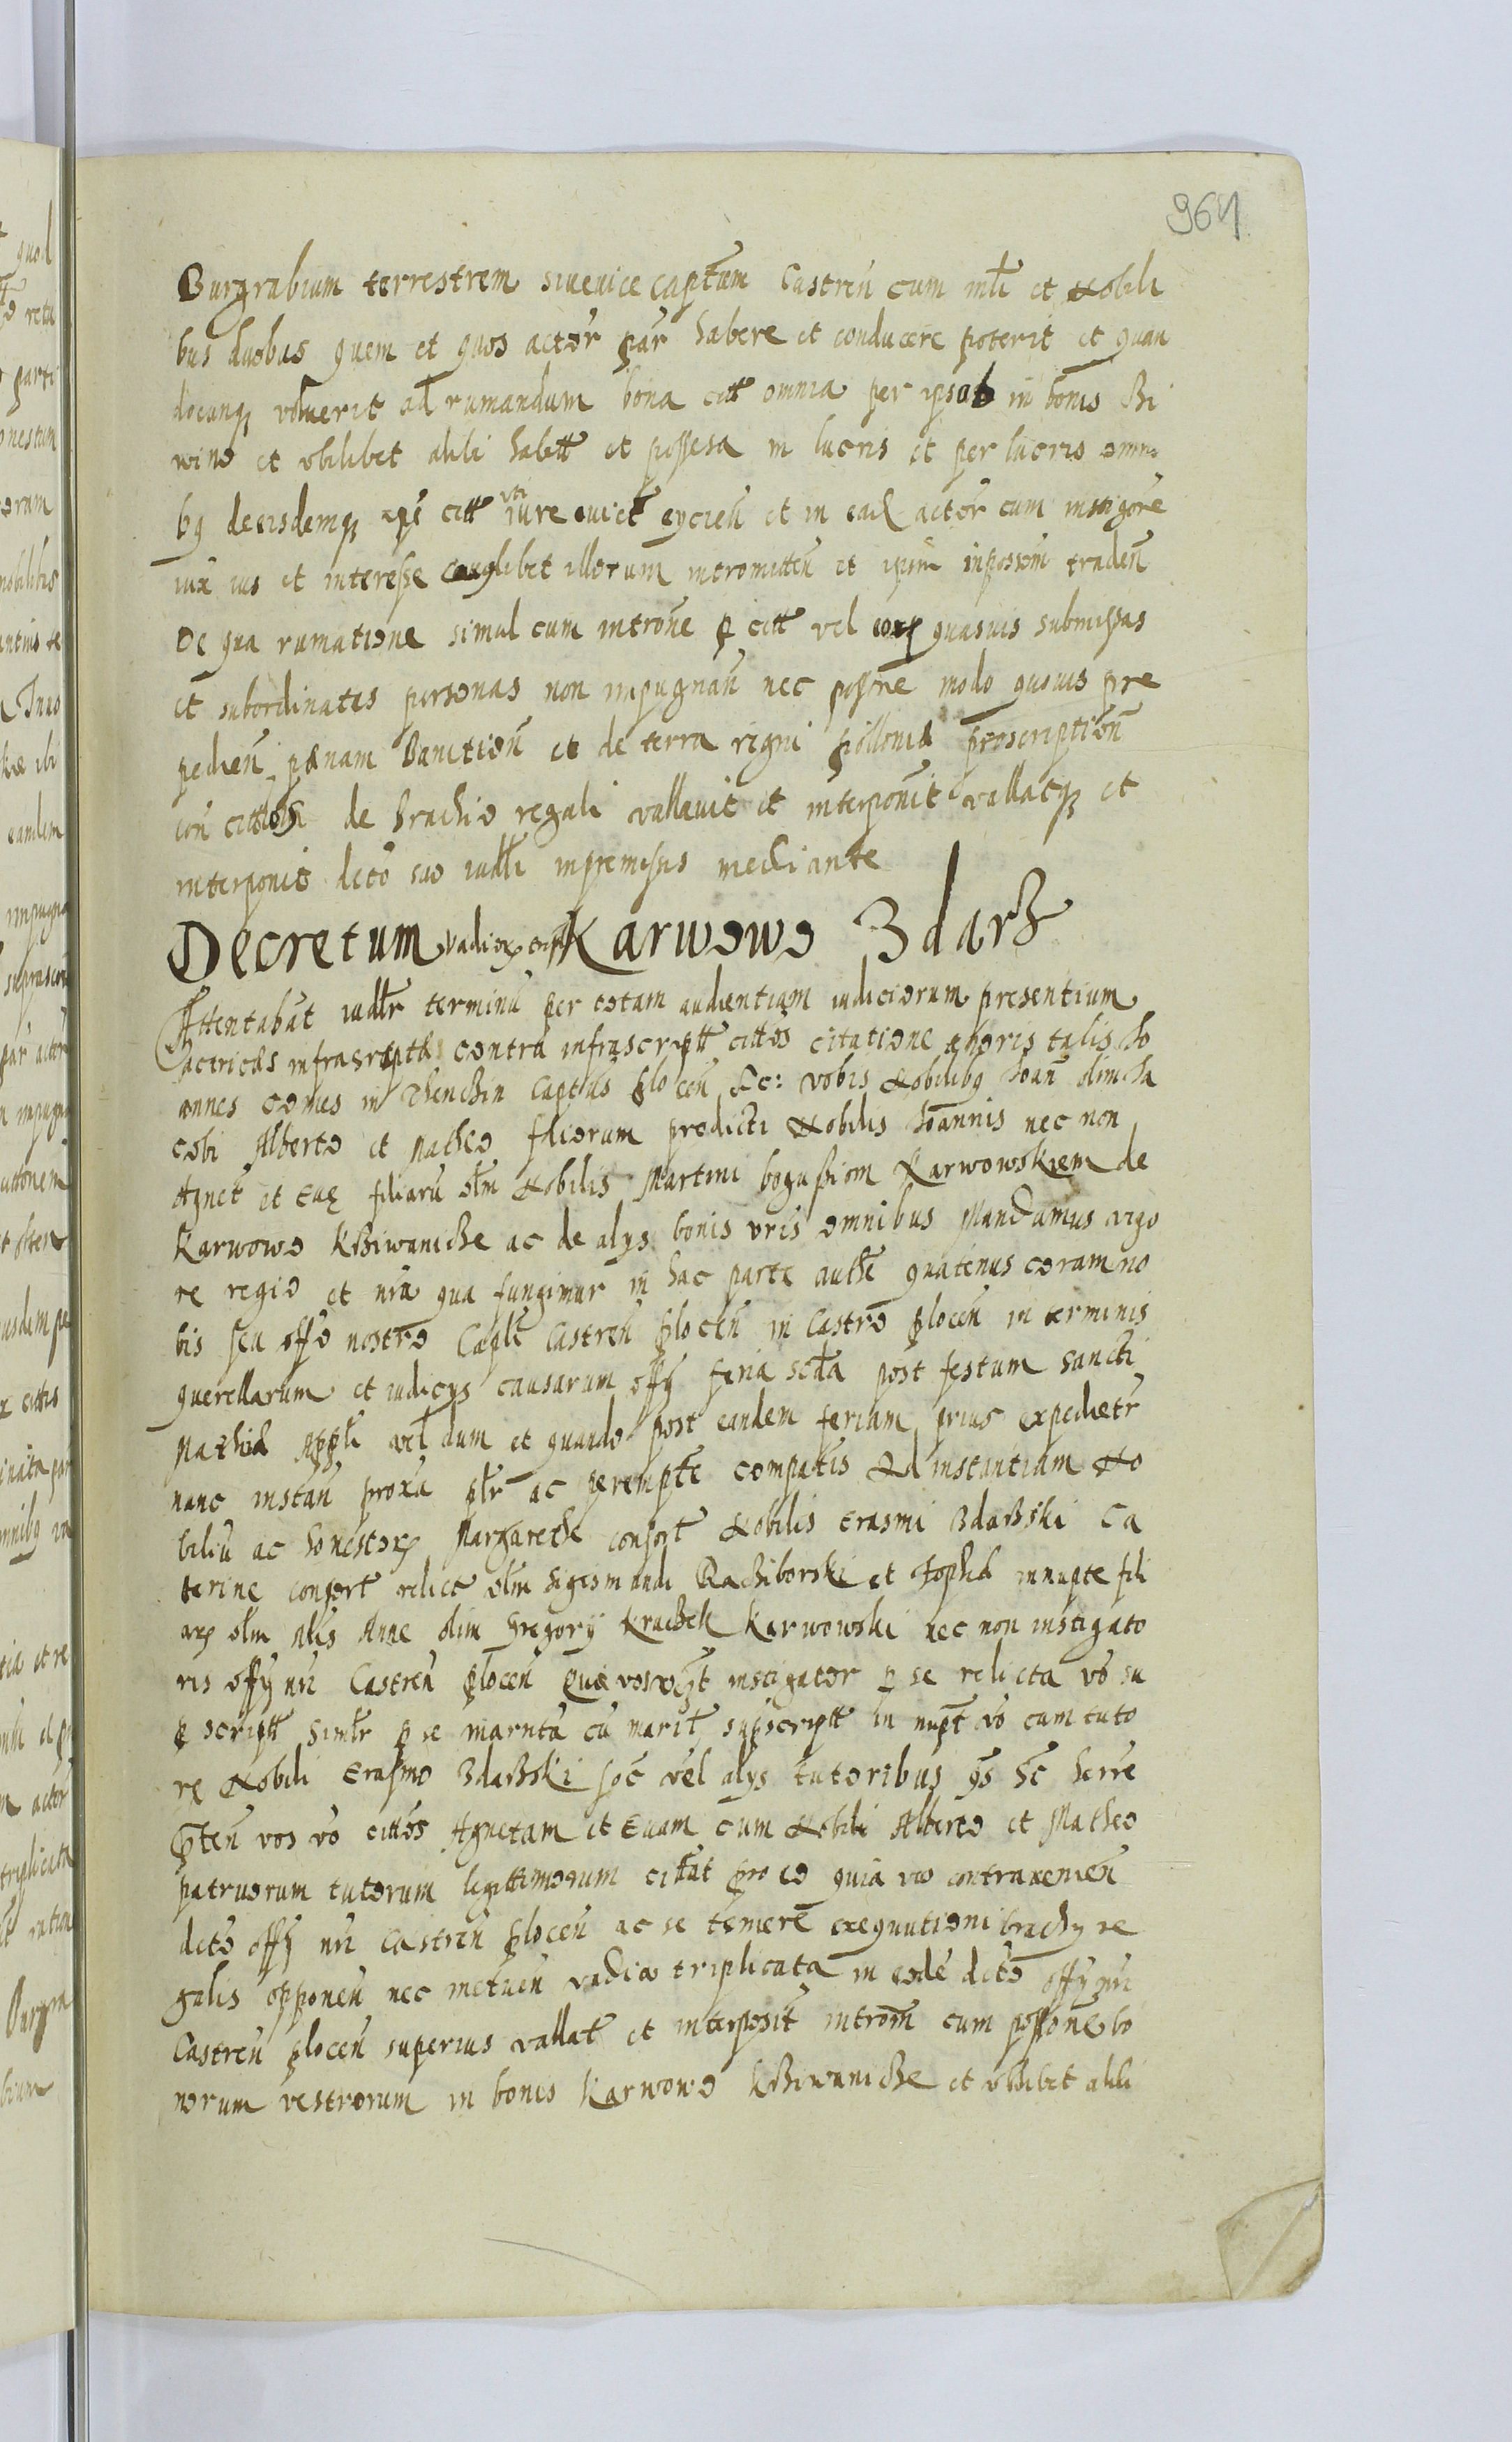 964
Burgrabium terrestrem siue vice Captem Castren cum mli et Nobili
bus duobus quem et quos actor par habere et conducere poterit et quan
docunq voluerit ad rumandum bona citt omnia per ipsos in bonis Bi
wino et vbilibet alibi habitt et possesa in lucris et per lucris omni
bq de eisdemq citt vti iure euict eycien et in ead actor cum instigore
iux ius et interesse cuiuslibet illorum intromitten et ipsum in possom traden
De qua rumatione simul cum introne p citt vel eorq quasuis submissas
et subordinatas personas non impugnan nec possne modo quouis pre
pedien pænam Banition et de terra regni Polloniæ proscription
con cittos de brachio regali vallauit et interponit vallatq et
interponit dcto suo iudli in premissis mediante
Decretum vadiorq Karwowo Zdarz
Attentabat iudlr terminu per totam audientiam iudiciorum presentium
actrices infrascriptæ contra infrascriptt cittos citatione thoris talis Jo
annes comes in Thenchin Captus Plocen &c: vobis Nobilibq Joan olim Ja
cobi Alberto et Matheo filiorum predicti Nobilis Joannis nec non
Agnet et Euę filiaru olm Nobilis Martini bogussiom Karwowskiem de
Karwowo Kssiwaniche ac de alys bonis vris omnibus Mandamus vigo
re regio et nra qua fungimur in hac parte authe quatenus coram no
bis seu offo nostro Caple Castren Plocen in Castro Plocen in terminis
querellarum et iudicys causarum offy feria scda post festum Sancti
Mathiæ Appli vel dum et quando post eandem feriam prius expedietr
nunc instan proxa plr ac perempte compatis Ad instantiam No
biliu ac honestorq Margarethe consort Nobilis Erasmi Zdarski Ca
terine consort relict olm Sigismundi Rachiborski et Zophiæ innupte fili
arq olm Alis Anne olim Gregorij Kruchek Karwowski nec non instigato
ris offy nri Castren Plocen Quæ vos instigator p se relicta vo su
p scriptt Simlr p se maritta cu marit supscriptt in nupt vo cum tuto
re Nobili Erasmo Zdarski soc vel alys tutoribus qs hc herre
pten vos vo cittos Agnetam et Euam cum Nobili Alberto et Matheo
patruorum tutorum legittimorum citat pro eo quia vos contrauenien
dcto offy nri Castren Plocen ac se temere exequutioni brachy re
galis opponen nec metuen vadia triplicata in eode dcto offy nri
Castren Plocen superius vallat et interposit introm cum possone bo
norum vestrorum in bonis Karwowo Kssiwaniche et vbilibet alibi